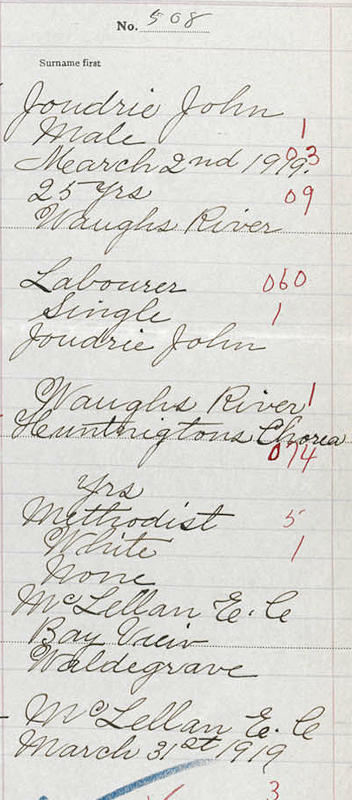 No. 508
Surname first
Joudrie John
Male 1
March 2nd 1919. 03
25 yrs 09
Waughs River
Labourer 060
Single 1
Joudrie John
Waughs River 1
Huntingtons Chorea
074
yrs
Methodist 5
White 1
None
McLellan E. C
Bay View
Waldegrave
McLellan E. C
March 31st 1919
3